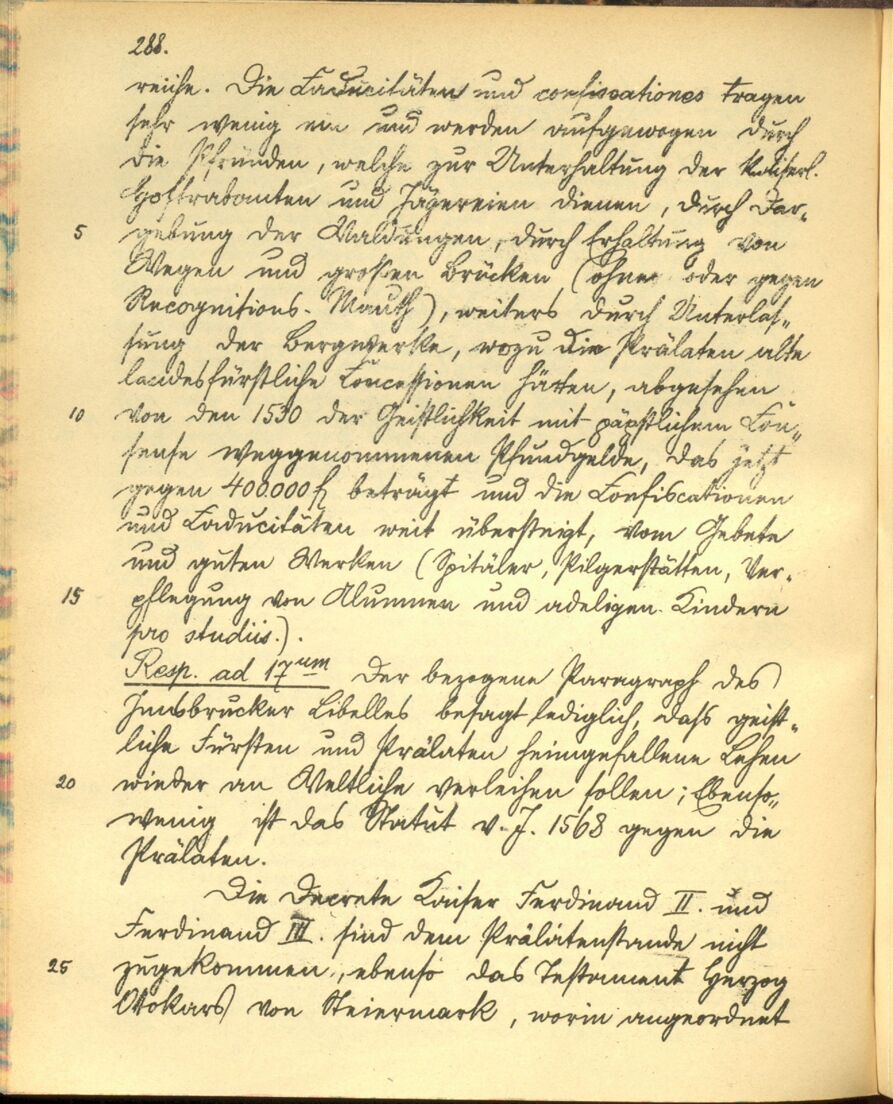 288.
reiche. Die Caducitäten und confiscationes tragen
sehr wenig ein und werden aufgewogen durch
die Pfründen, welche zur Unterhaltung der Kaiserl.
Hoftrabanten und Jägereien dienen, durch Dar-
5 gebung der Waldungen, durch Erhaltung von
Wegen und großen Brücken (ohne oder gegen
Recognitions-Mauth), weiters durch Unterlas-
sung der Bergwerke, wozu die Prälaten alte
landesfürstliche Concessionen hätten, abgesehen
10 von den 1530 der Geistlichkeit mit päpstlichem Con-
sense weggenommenen Pfundgelde, das jetzt
gegen 400.000 f beträgt und die Confiscationen
und Caducitäten weit übersteigt, vom Gebete
und guten Werken (Spitäler, Pilgerstätten, Ver-
15 pflegung von Alumnen und adeligen Kindern
pro studiis.).
Resp. ad 17um Der bezogene Paragraph des
Innsbrucker Libelles besagt lediglich, dass geist-
liche Fürsten und Prälaten heimgefallene Lehen
20 wieder an Weltliche verleihen sollen; Ebenso-
wenig ist das Statut v. J. 1568 gegen die
Prälaten.
Die Decrete Kaiser Ferdinand II. und
Ferdinand III. sind dem Prälatenstande nicht
25 zugekommen, ebenso das Testament Herzog
Otokars von Steiermark, worin angeordnet